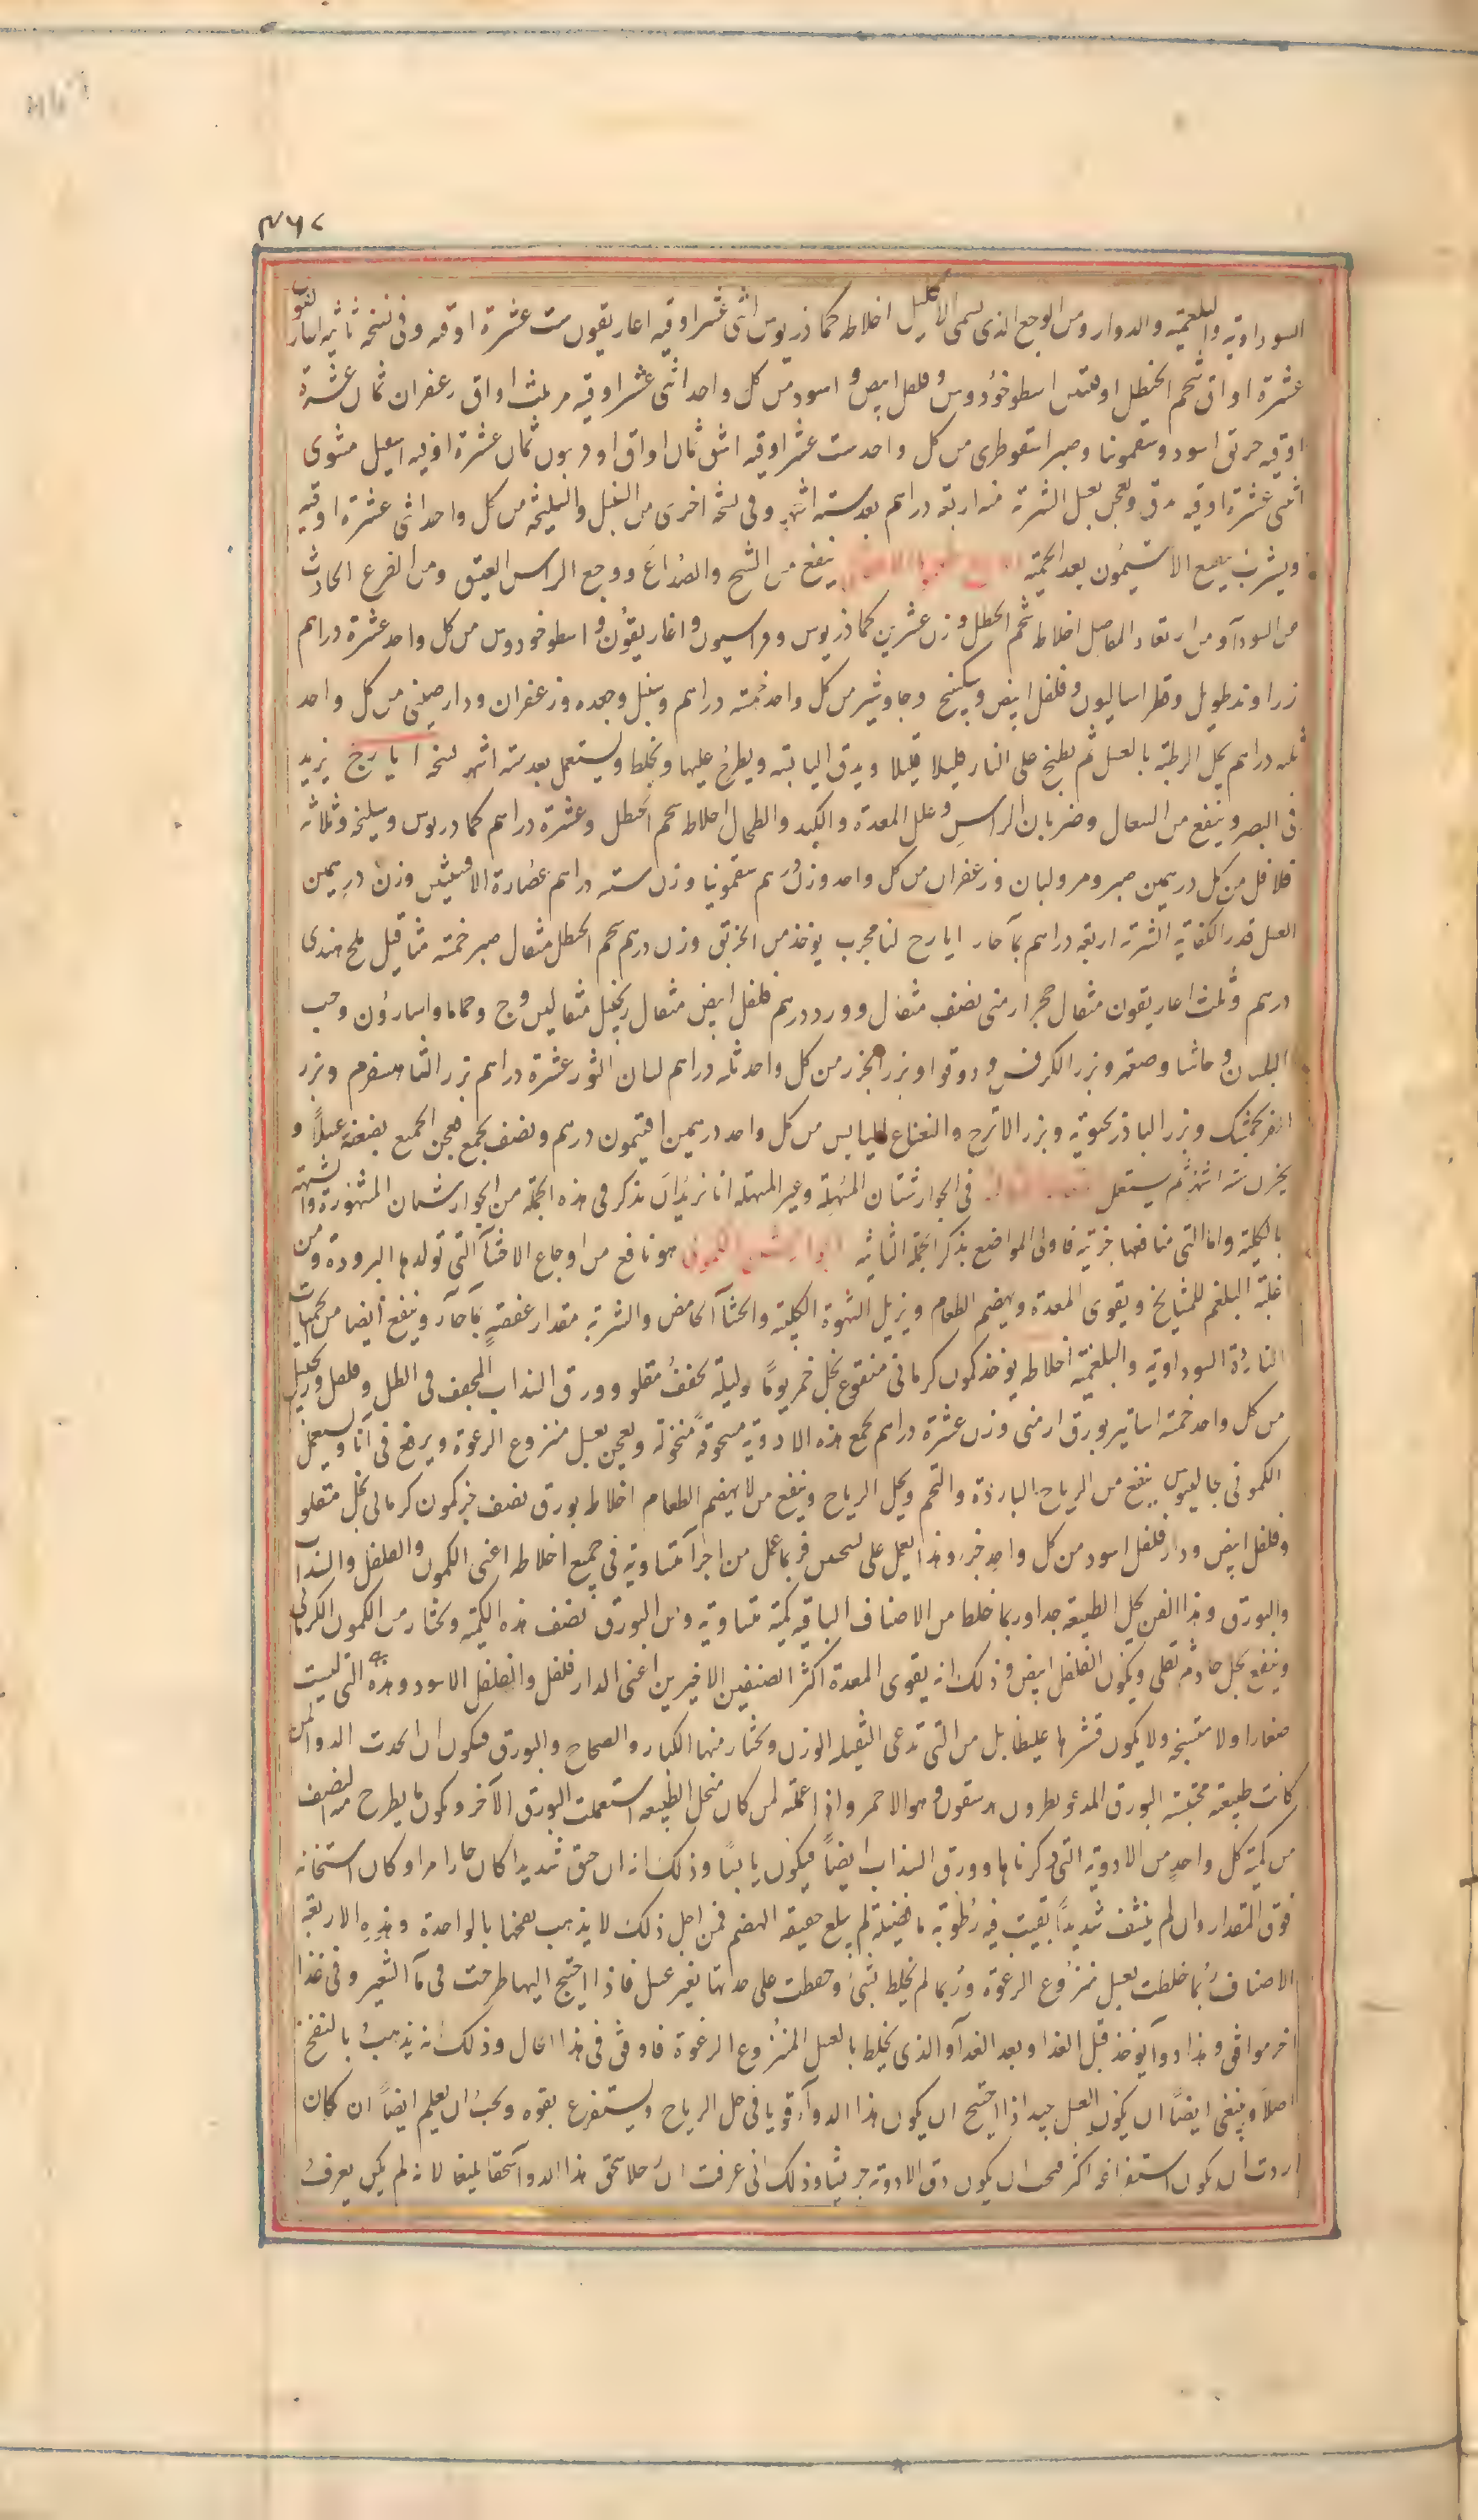 ٤٦٧
السوداوية والبلغمية والدوار ومن الوجع الذى يسمى الاكليل اخلاطه كماذريوس اثنى عشر اوقيه اغاريقون ست عشرة اوقيه وفى نسخه ثانيه اغاريقون
عشرة اواق شحم الحنظل اوقيتين اسطوخودوس وفلفل ابيض واسود من كل واحد اثنى عشر اوقيه مر ثلث اواق زعفران ثمان عشرة
اوقيه خربق اسود وسقمونيا وصبر اسقوطرى من كل واحد ست عشر اوقيه اشق ثمان اواق اوفربيون ثمان عشرة اوقيه اسقيل مشوى
اثنى عشرة اوقيه يدق ويعجن بعسل الشربة منه اربعة دراهم بعد سته اشهر وفى نسخة اخرى من السنبل والسليخه من كل واحد اثنى عشرة اوقيه
ويشرب بنقيع الافتيمون بعد الحمية ينفع من الشيح والصُداع ووجع الراس العتيق ومن الفزع الحادث
من السودآ ومن ارتعاد المفاصل اخلاطه شحم الحنظل وزن عشرين كماذريوس وفراسيون واغاريقون واسطوخودوس من كل واحد عشرة دراهم
زراوند طويل وفطراساليون وفلفل ابيض وسكبينج وجاوشير من كل واحد خمسة دراهم وسنبل وجعده وزعفران ودارصينى من كل واحد
ثلثه دراهم يحل الرطبة بالعسل ثم يطبخ على النار قليلا قليلا ويدق اليابسة ويطرح عليها ويخلط ويستعمل بعد ستة اشهر نسخه ايارج يزيد
فى البصر وينفع من السعال وضربان الراس وعلل المعدة والكبد والطحال اخلاطه شحم الحنظل وعشرة دراهم كمادريوس وسليخه وثلاثه
فلافل من كل درهمين صبر ومر ولبان وزعفران من كل واحد وزن درهم سقمونيا وزن سته دراهم عصارة الافسنتين وزن درهمين
العسل قدر الكفاية الشربة اربعه دراهم بمآ حار ايارج لنا مجرب يوخذ من الخربق وزن درهم شحم الحنظل مثقال صبر خمسة مثاقيل ملح هندى
درهم وثلث اغاريقون مثقال حجر ارمنى نصف مثقال وورد درهم فلفل ابيض مثقال زنجبيل مثقالين وج وحماما واسارون وحب
البلسان وحاشا وصعتر وبزر الكرفس ودوقوا وبزر الجزر من كل واحد ثلثه دراهم لسان الثور عشرة دراهم بزر الشاهسفرم وبزر
الفرنجمشك وبزر الباذرنجبويه وبزر الاترج والنعناع اليابس من كل واحد درهمين افتيمون درهم ونصف يجمع يعجن الجميع بضعفه عسلاً و
يخزن ستة اشهر ثم يستعمل فى الجوارشنات المسهلة وغير المسهلة انا نريد ان نذكر فى هذه الجملة من الجوارشنات المشهورة والشبيهة
بالكلية واما التى منافعها جزئية فاولى المواضع بذكر الجملة الثانيه الجوارشن الكمونى هو نافع من اوجاع الاحشآ التى تولدها البرودة ومن
غلبة البلغم للمشايخ ويقوى المعدة ويهضم الطعام ويزيل الشهوة الكلبية والجشآ الحامض والشربة مقدار عفصة بمآ حار وينفع ايضا من الحميات
الباردة السوداوية والبلغمية اخلاطه يوخذ كمون كرمانى منقوع بخل خمر يومًا وليلة مجفف مقلو وورق السذاب المجفف فى الظل وفلفل وزنجبيل
من كل واحد خمسة اساتير بورق ارمنى وزن عشرة دراهم يجمع هذه الادوية مسحوقة منخولة ويعجن بعسل منزوع الرغوة ويرفع فى انآ ويستعمل
الكمونى جالينوس ينفع من الرياح الباردة والتخم ويحل الرياح وينفع من لا يهضم الطعام اخلاطه بورق نصف جز كمون كرمانى بخل مقلو
وفلفل ابيض ودارفلفل اسود من كل واحد جزء وهذا يعمل على نسختين فربما عمل من اجزآ متساوية فى جميع اخلاطه اعنى الكمون والفلفل والسذاب
والبورق وهذا الفن يحل الطبيعه جدا وربما خلط من الاصناف الباقيه كمية متساوية ومن البورق نصف هذه الكمية ويختار من الكمون الكرمانى
وينقع بخل حاد ثم يقلى ويكون الفلفل ابيض وذلك انه يقوى المعدة اكثر الصنفين الاخيرين اعنى الدارفلفل والفلفل الاسود وهذه التى ليست
صغارا ولا متشنجه ولا يكون قشرها غليظا بل من التى تدعى الثقيله الوزن ويختار منها الكبار والصحاح والبورق فيكون ان اتخذت الدوا لمن
كانت طبيعته محتبسه البورق المدعو بطرون وهو الاحمر واذا عملته لمن كان منحل الطبيعه استعملت البورق الآخر ويكون ما يطرح منه النصف
من كمية كل واحد من الادويه التى ذكرناها وورق السذاب ايضاً فيكون يابسًا وذلك انه ان جفف شديدا كان حارا مرا وكان اسخانه
فوق المقدار وان لم ينشف شديداً بقيت فيه رطوبة ما فضيلة لم يبلغ حقيقه الهضم فمن اجل ذلك لا يذهب نفخها بالواحدة وهذه الاربعة
الاصناف ربما خلطت بعسل منزوع الرغوة وربما لم يخلط بشئ وحفظت على حدتها بغير عسل فاذا احتيج اليها طرحت فى مآ الشعير وفى غذا
اخر موافق وهذا دوآ يوخذ قبل الغذا وبعد الغدآ والذى يخلط بالعسل المنزوع الرغوة فاوفق فى هذا الحال وذلك انه يذهب بالنفخ
اصلاً وينبغى ايضاً ان يكون العسل جيد اذا احتيج ان يكون هذا الدوآ قويا فى حل الرياح ويستفرغ بقوه ويجب ان يعلم ايضاً ان كان
اردت ان يكون استفراغه اكثر فيجب ان يكون دق الادوية جريشا وذلك انى عرفت ان رجلا سحق هذا الدوآ سحقا بليغا لانه لم يكن يعرف